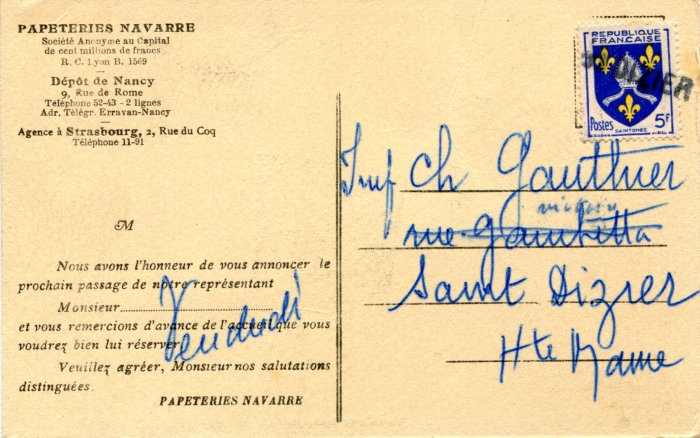 PAPETERIES NAVARRE
Société Anonyme au Capital
de cent millions de francs
R. C. Lyon B. 1569
Dépôt de Nancy
9, Rue de Rome
Téléphone 52-43 - 2 lignes
Adr. Télégr. Erravan-Nancy
Agence à Strasbourg, 2, Rue du Coq
Téléphone 11-91
M
Nous avons l'honneur de vous annoncer le
prochain passage de notre représentant
Monsieur
Vendredi
et vous remercions d'avance de l'accueil que vous
voudrez bien lui réserver.
Veuillez agréer, Monsieur nos salutations
distinguées.
PAPETERIES NAVARRE
REPUBLIQUE
FRANÇAISE
DIZIER
Postes
SAINTONGE
5F
Imp Ch Gauthier
rue Gambetta
Saint Dizier
Hte Marne